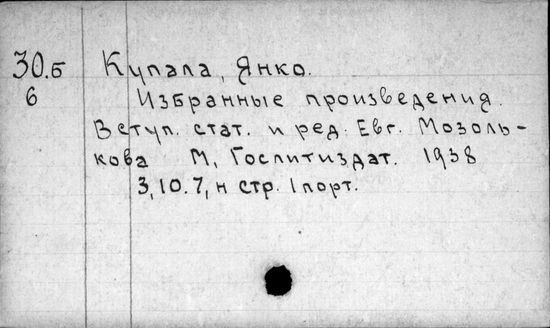 30.б Купала, Янко.
6 Избранные произведения.
Вступ. стат. и ред. Евг. Мозоль-
кова М, Гослитиздат. 1938
3,10.7, н стр. 1 порт.